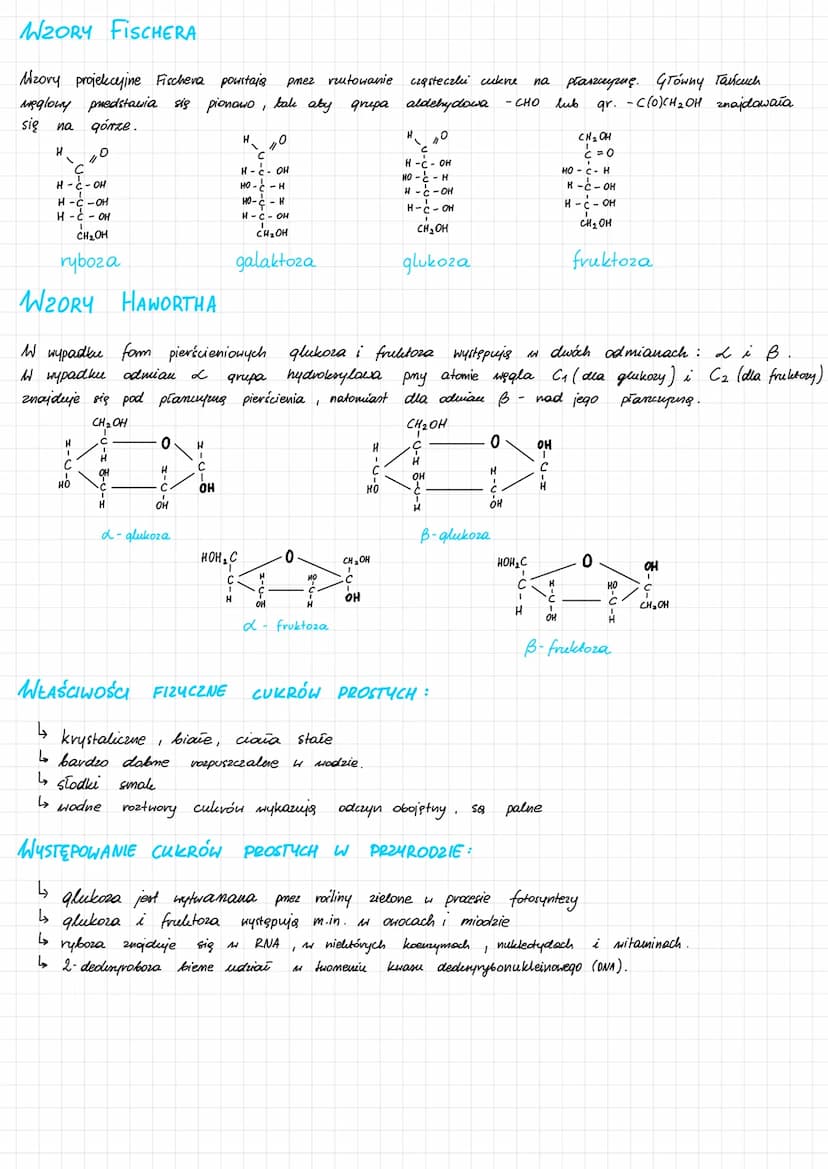 WZORY FISCHERA
Wzory projekcyjne Fischera powstają przez rzutowanie cząsteczki cukru na płaszczyznę. Główny łańcuch
węglowy przedstawia się pionowo, tak aby grupa aldehydowa -CHO lub gr. -C(O)CH₂OH znajdowała
się na górze.
H O H O H O CH₂OH
C C C C=O
H-C-OH H-C-OH H-C-OH HO-C-H
H-C-OH HO-C-H HO-C-H H-C-OH
H-C-OH HO-C-H H-C-OH H-C-OH
CH₂OH H-C-OH H-C-OH CH₂OH
CH₂OH CH₂OH
ryboza galaktoza glukoza fruktoza
WZORY HAWORTHA
W wypadku form pierścieniowych glukoza i fruktoza występują w dwóch odmianach: α i β.
W wypadku odmian α grupa hydroksylowa przy atomie węgla C₁ (dla glukozy) i C₂ (dla fruktozy)
znajduje się pod płaszczyzną pierścienia, natomiast dla odmian β - nad jego płaszczyzną.
CH₂OH CH₂OH
C O H C O OH
H H H H
C OH H C C OH H C
HO C C OH HO C C H
H OH H OH
α-glukoza β-glukoza
HOH₂C O CH₂OH HOH₂C O OH
C H HO C C H HO C
H C C OH H C C CH₂OH
OH H OH H
α - fruktoza
β-fruktoza
WŁAŚCIWOŚCI FIZYCZNE CUKRÓW PROSTYCH:
↳ krystaliczne, białe, ciała stałe
↳ bardzo dobrze rozpuszczalne w wodzie.
↳ słodki smak
↳ wodne roztwory cukrów wykazują odczyn obojętny, są palne
WYSTĘPOWANIE CUKRÓW PROSTYCH W PRZYRODZIE:
↳ glukoza jest wytwarzana przez rośliny zielone w procesie fotosyntezy
↳ glukoza i fruktoza występują m.in. w owocach i miodzie
↳ ryboza znajduje się w RNA, w niektórych koenzymach, nukleotydach i witaminach.
↳ 2-deoksyryboza bierze udział w tworzeniu kwasu deoksyrybonukleinowego (DNA).